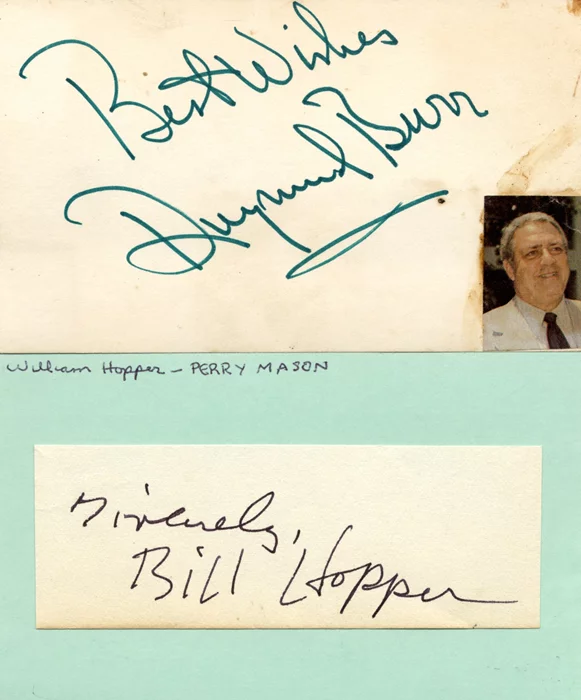 Best Wishes
Raymond Burr
William Hopper - PERRY MASON
Sincerely,
Bill Hopper